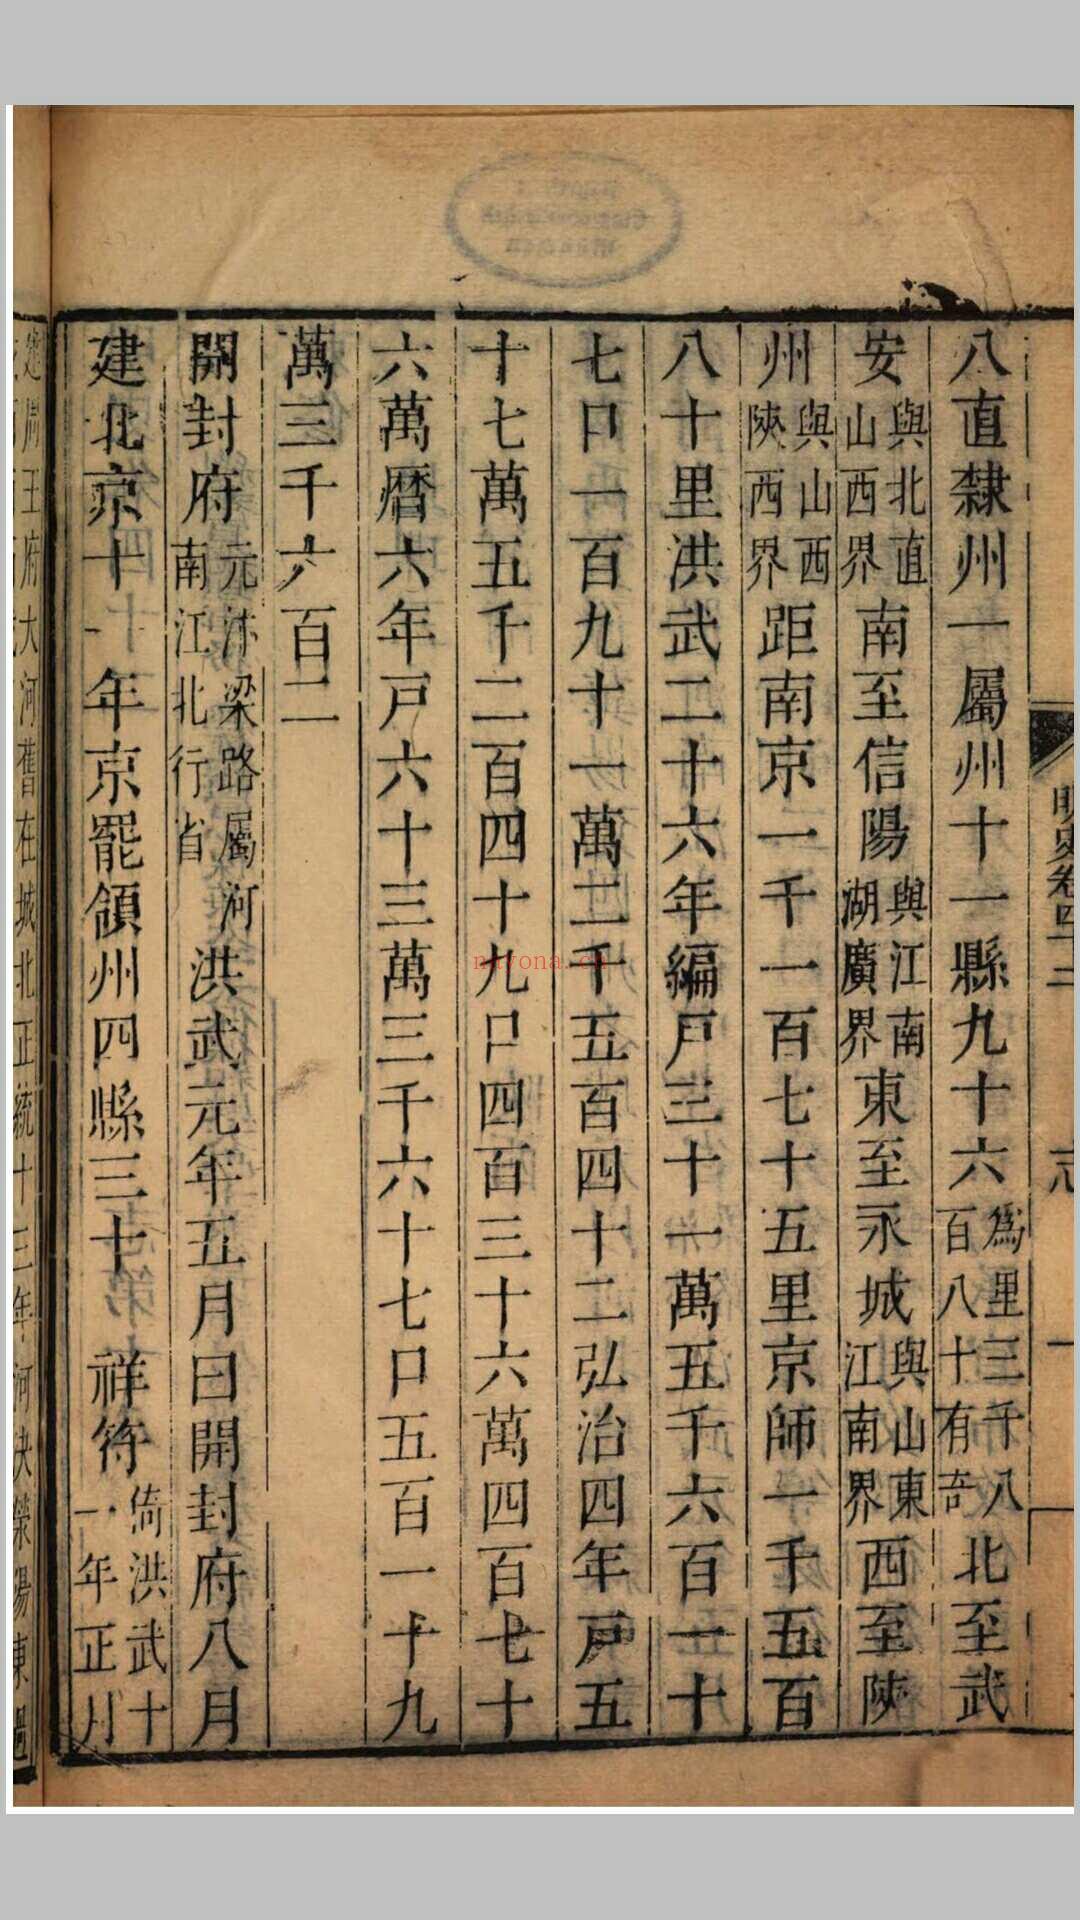 明史卷四十二 志 一
八直隸州一屬州十一縣九十六為里三千八百八十有奇北至武
安與北直山西界南至信陽與江南湖廣界東至永城與山東江南界西至陝
州與山西陝西界距南京一千一百七十五里京師一千五百
八十里洪武二十六年編戶三十一萬五千六百一十
七口一百九十一萬二千五百四十二弘治四年戶五
十七萬五千二百四十九口四百三十六萬四百七十
六萬曆六年戶六十三萬三千六十七口五百一十九
萬三千六百二
開封府元汴梁路屬河南江北行省洪武元年五月曰開封府八月
建北京十一年京罷領州四縣三十 祥符倚洪武十一年正月
建周王府大河舊在城北正統十三年河決滎陽東過
nayona.cn